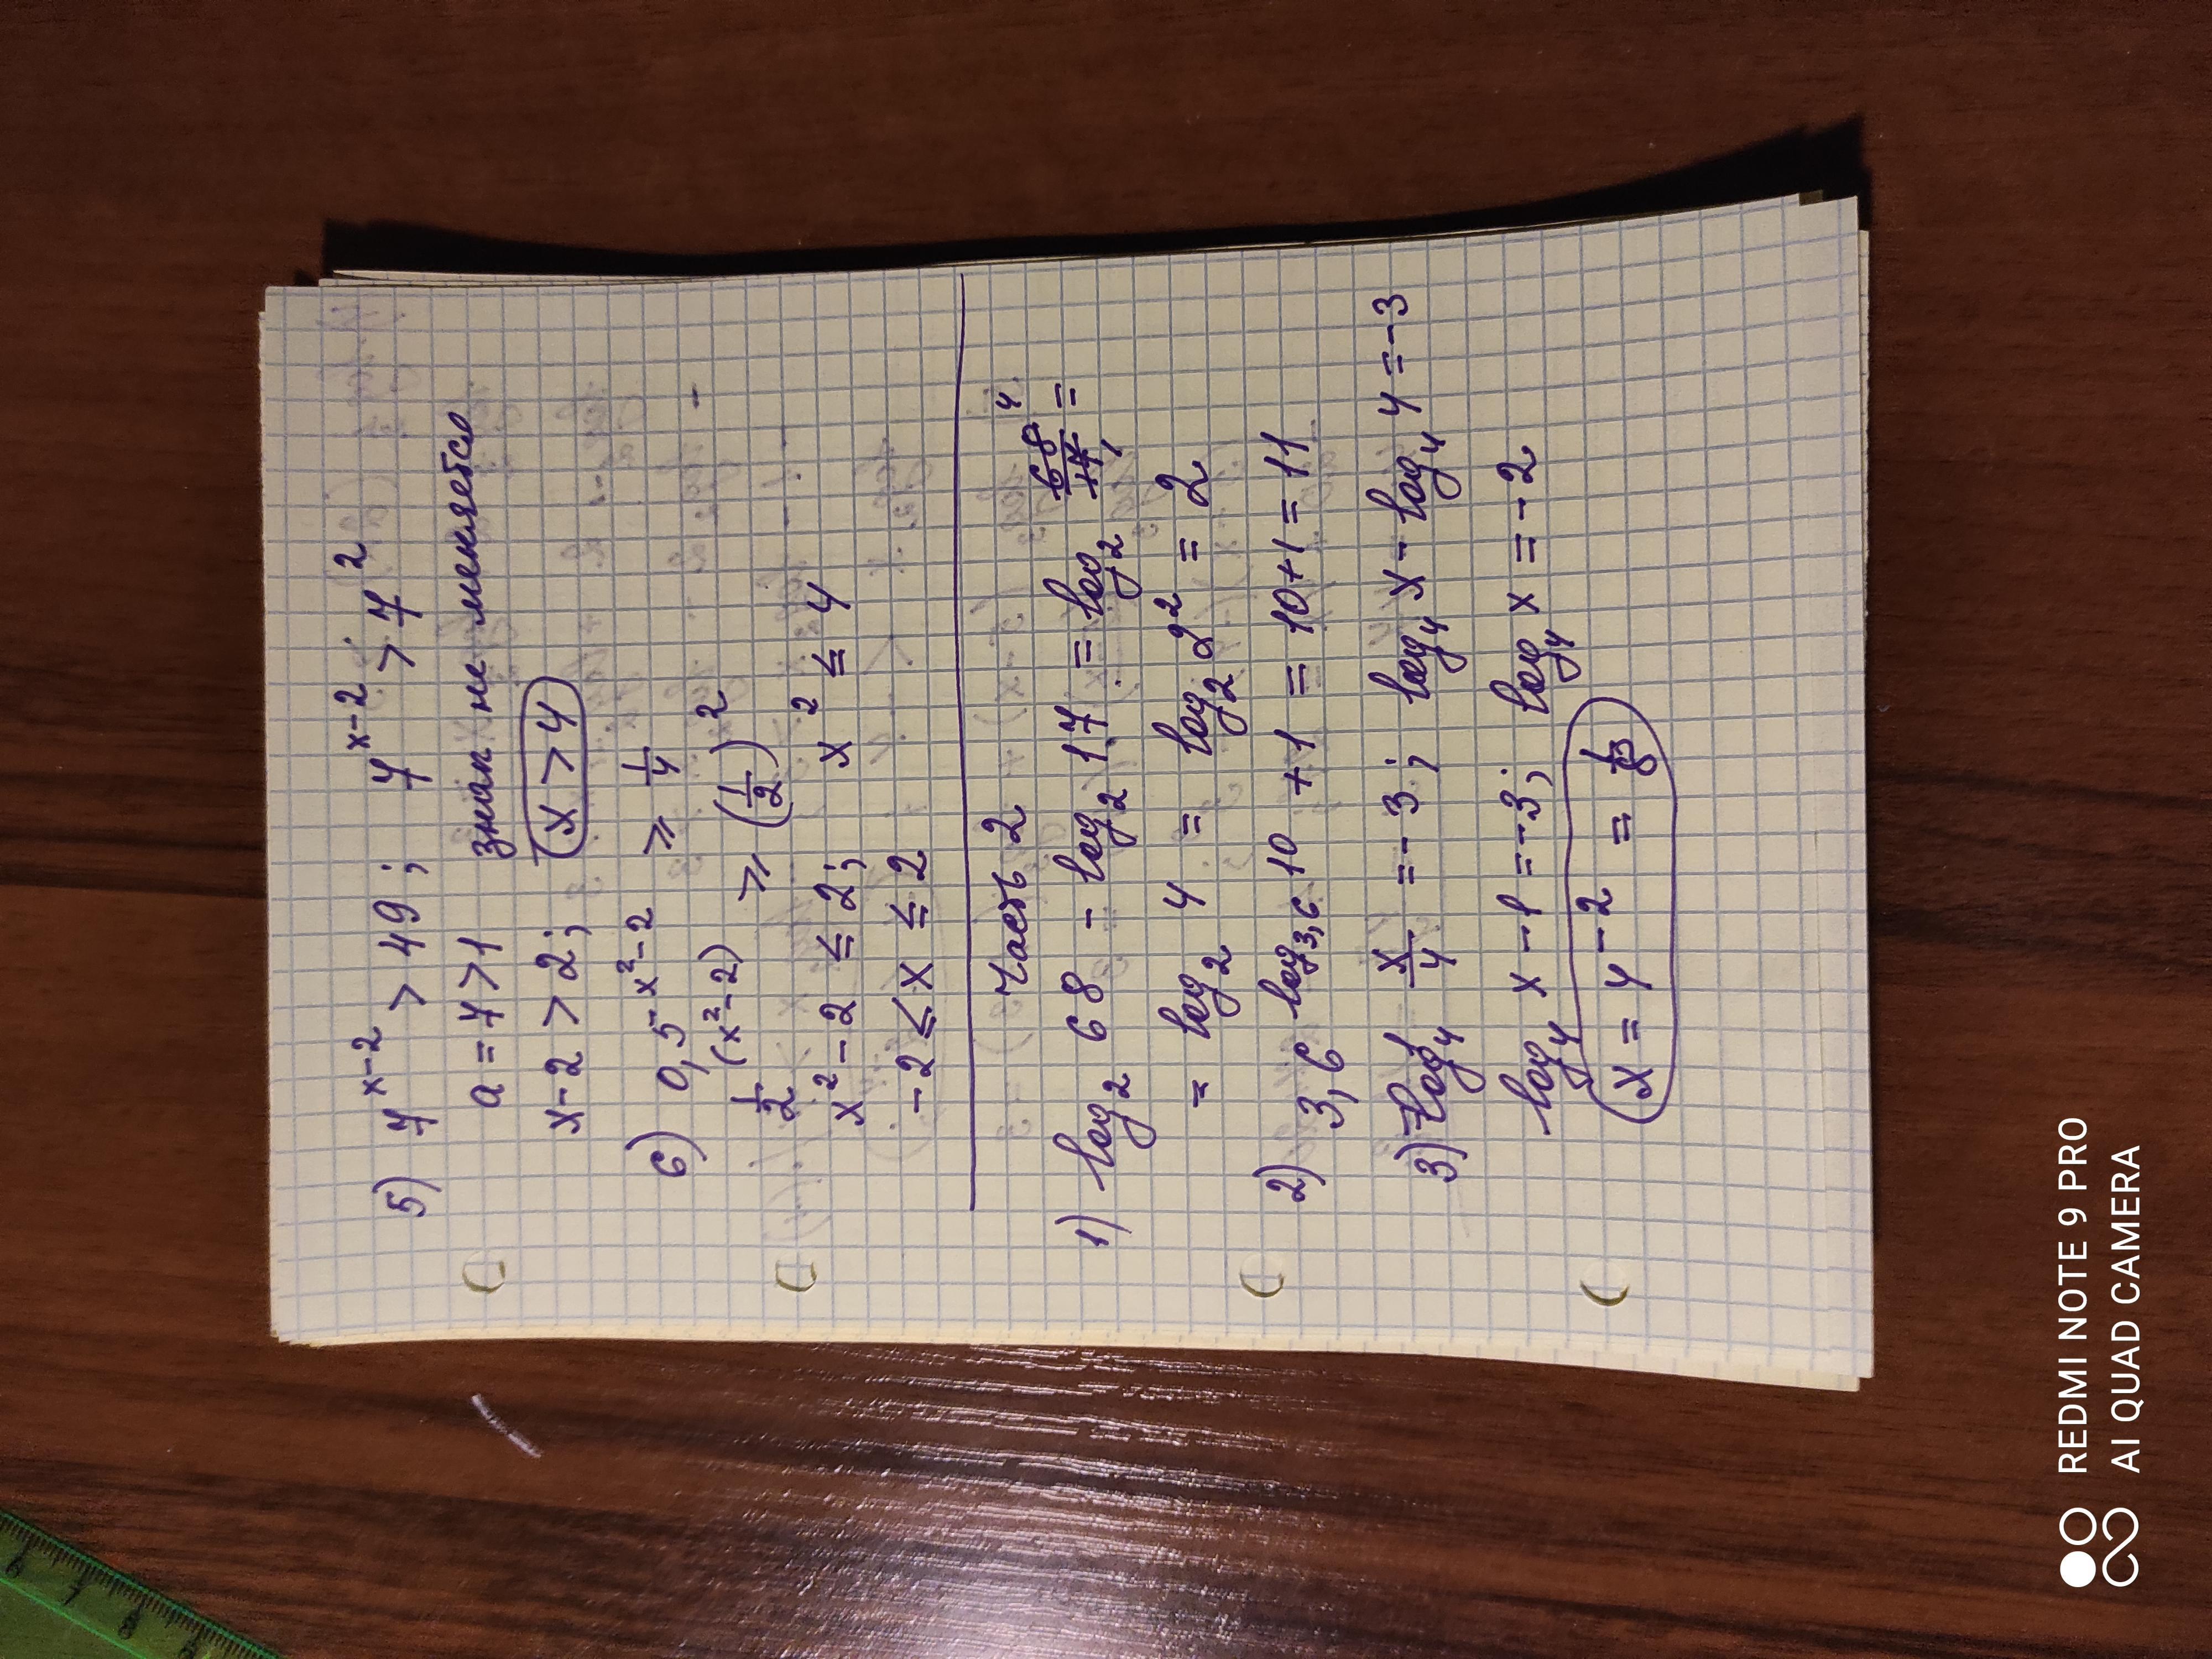 5) 7^(x-2) > 49; 7^(x-2) > 7^2
a = 7 > 1 знак не меняется
x-2 > 2; x > 4
6) 0,5^(-x^2-2) ≥ 1/4
1/2^(x^2-2) ≥ (1/2)^2
x^2 - 2 ≤ 2; x^2 ≤ 4
-2 ≤ x ≤ 2
Часть 2
1) log_2 68 - log_2 17 = log_2 68/17 4 1 =
= log_2 4 = log_2 2^2 = 2
2) 3,6^(log_3,6 10) + 1 = 10+1 = 11
3) log_4 x/4 = -3; log_4 x - log_4 4 = -3
log_4 x - 1 = -3; log_4 x = -2
x = 4^(-2) =
REDMI NOTE 9 PRO
AI QUAD CAMERA